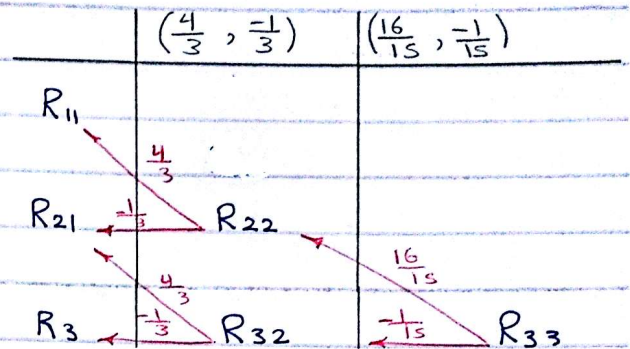 (4/3 , -1/3) (16/15 , -1/15)
R11
4/3
R21 -1/3 R22
4/3 16/15
R3 -1/3 R32 -1/15 R33